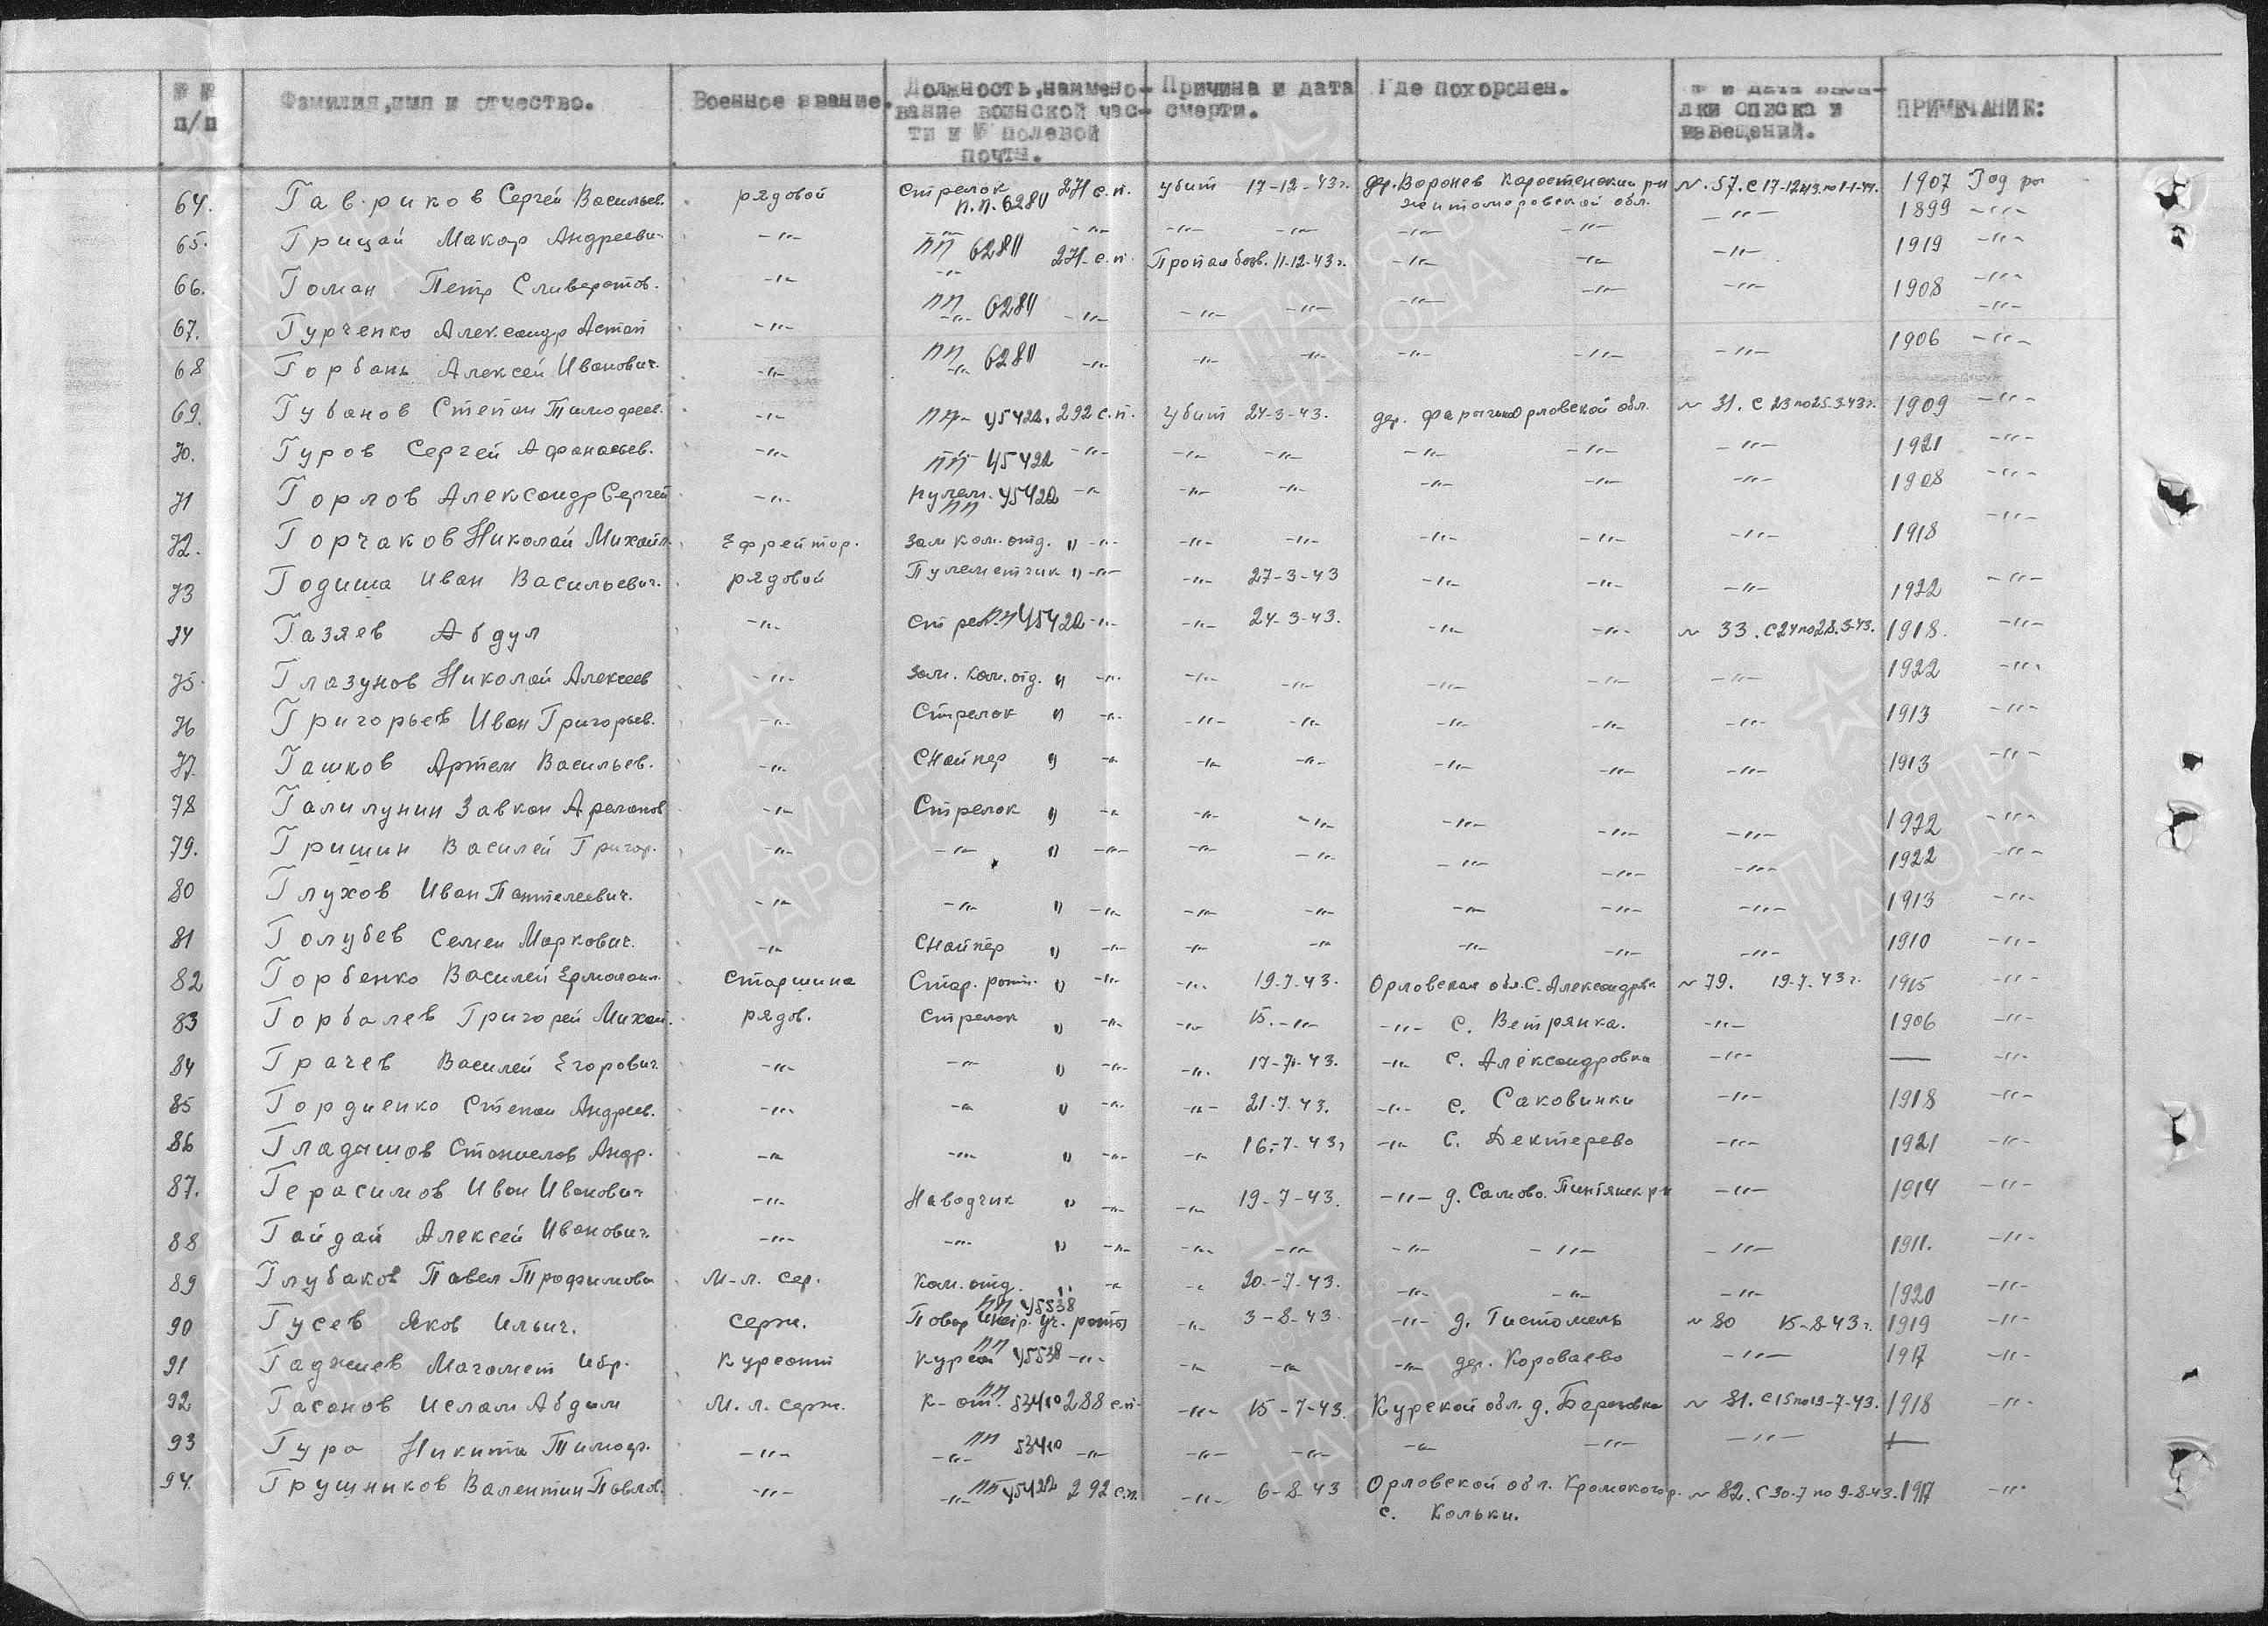 № № п/п | Фамилия, имя и отчество. | Военное звание. | Должность, наименование воинской части и № полевой почты. | Причина и дата смерти. | Где похоронен. | № и дата лки списка и извещений. | ПРИМЕЧАНИЕ:
64. Гавриков Сергей Васильев. рядовой Стрелок п.п. 62811 271 с.п. убит 17-12-43г. дер. Воронев Коростенский р-н Житомировской обл. № 57. с 17-12-43. по 1-1-44. 1907 Год ро
65. Грицай Макар Андреевич -"- -"- -"- -"- -"- -"- -"- -"- 1899 -"-
66. Гоман Петр -"- ПП 62811 -"- 271 с.п. Пропал безв. 11-12-43г. -"- -"- -"- 1919 -"-
67. Гурченко Александр Астап -"- ПП 62811 -"- -"- -"- -"- -"- -"- -"- 1908 -"-
68 Горбань Алексей Иванович. -"- ПП 62811 -"- -"- -"- -"- -"- -"- -"- 1906 -"-
69. Губанов Степан Тимофеев. -"- ПП 45422. 292 с.п. убит 24-3-43. дер. Орловской обл. № 31. с 23 по 25.3.43г. 1909 -"-
70. Гуров Сергей Афанасьев. -"- ПП 45422 -"- -"- -"- -"- -"- -"- 1921 -"-
71 Горлов Александр Сергей -"- пулем. ПП 45422 -"- -"- -"- -"- -"- -"- 1908 -"-
72. Горчаков Николай Михайл. Ефрейтор. Зам ком. отд. " -"- -"- -"- -"- -"- -"- 1918 -"-
73 Годиша Иван Васильевич. рядовой Пулеметчик " -"- -"- 27-3-43 -"- -"- -"- 1922 -"-
74 Газяев Абдул -"- Стрел. ПП 45422 -"- -"- 24-3-43. -"- -"- № 33. с 24 по 28.3.43. 1918. -"-
75. Глазунов Николай Алексеев -"- Зам. ком. отд. " -"- -"- -"- -"- -"- -"- 1922 -"-
76 Григорьев Иван Григорьев. -"- Стрелок " -"- -"- -"- -"- -"- -"- 1913 -"-
77. Гашков Артем Васильев. -"- Снайпер " -"- -"- -"- -"- -"- -"- 1913 -"-
78 Галилунин Завкон -"- Стрелок " -"- -"- -"- -"- -"- -"- 1922 -"-
79. Гришин Василей Григор. -"- -"- " -"- -"- -"- -"- -"- -"- 1922 -"-
80 Глухов Иван Пантелеевич. -"- -"- " -"- -"- -"- -"- -"- -"- 1913 -"-
81 Голубев Семен Маркович. -"- Снайпер " -"- -"- -"- -"- -"- -"- 1910 -"-
82 Горбенко Василей Ермолаил. Старшина Стар. роты. " -"- -"- 19.7.43. Орловская обл. с. Александров № 79. 19-7.43г. 1915 -"-
83 Горбалев Григорей Михай. рядов. Стрелок " -"- -"- 15. -"- -"- с. Ветрянка. -"- 1906 -"-
84 Грачев Василей Егорович. -"- -"- " -"- -"- 17-7-43. -"- с. Александровка -"- — -"-
85 Гордиенко Степан Андреев. -"- -"- " -"- -"- 21.7.43. -"- с. Саковинки -"- 1918 -"-
86 Гладышов Андр. -"- -"- " -"- -"- 16-7-43г -"- с. Дектерево -"- 1921 -"-
87. Герасимов Иван Иванович -"- Наводчик " -"- -"- 19-7-43. -"- д. Самово. р-н -"- 1914 -"-
88 Гайдай Алексей Иванович. -"- -"- " -"- -"- -"- -"- -"- -"- 1911. -"-
89 Глубаков Павел Трофимови М-л. сер. Ком. отд. " -"- -"- 20.-7-43. -"- -"- -"- 1920 -"-
90 Гусев Яков Ильич. серж. Повар ПП 45538 уч. роты -"- 3-8-43. -"- д. Гистомель № 80 15-8-43г. 1919 -"-
91 Гаджиев Магомет Ибр. Курсант Курсан ПП 45538 -"- -"- -"- -"- дер. Короваево -"- 1917 -"-
92 Гасанов Ислам Абдил М.л. серж. к-от. ПП 53410 288 с.п. -"- 15-7-43. Курской обл. д. Березовка № 81. с 15 по 19-7-43. 1918 -"-
93 Гура Никита Тимоф. -"- -"- ПП 53410 -"- -"- -"- -"- -"- -"- —
94. Грушников Валентин Павлов. -"- -"- ПП 45422 292 с.п. -"- 6-8-43 Орловской обл. с. Кольки. № 82. с 30-7 по 9-8-43. 1917 -"-
ПАМЯТЬ НАРОДА